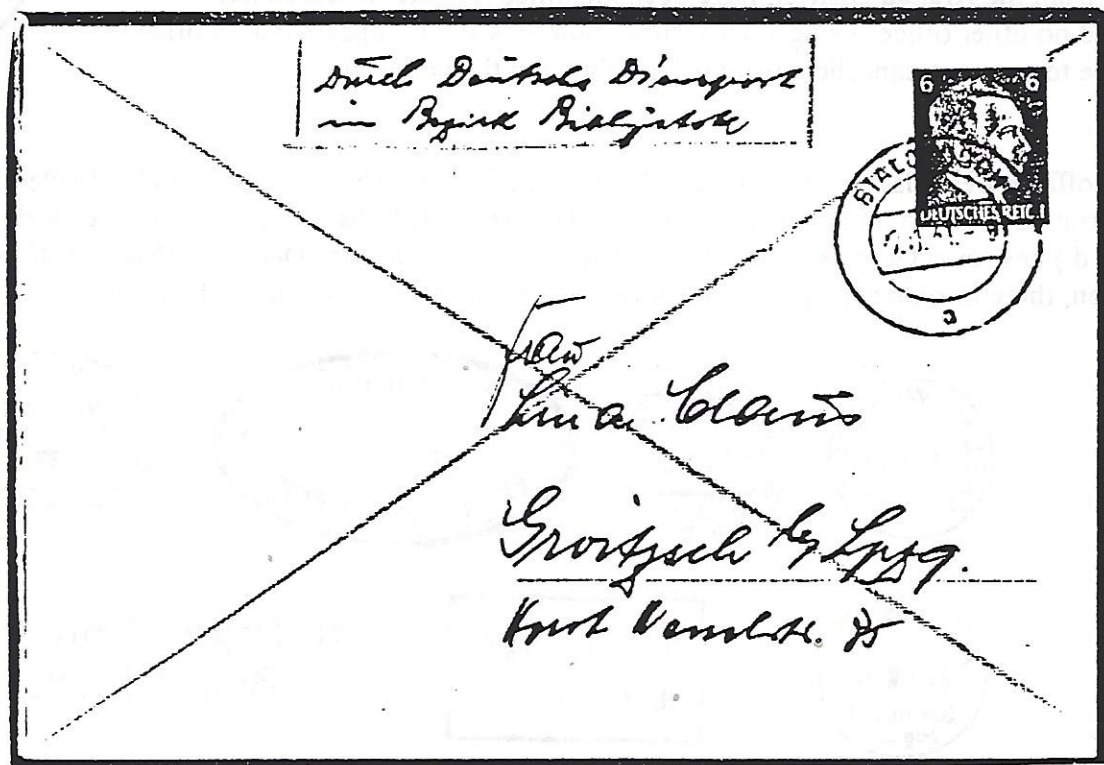 Durch Deutsche Dienstpost
im Bezirk Bialystok
6 6
DEUTSCHES REICH
BIALYSTOK
a
Frau
Lina Claus
Groitzsch b/ Lpzg.
Horst Wesselstr. 35